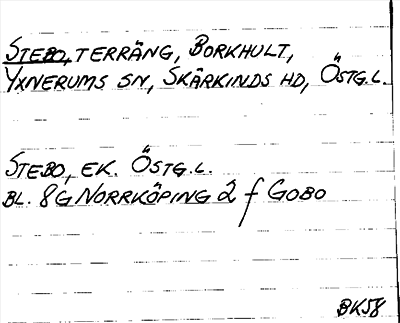 STEBO, TERRÄNG, BORKHULT,
YXNERUMS SN, SKÄRKINDS HD, ÖSTG.L.
STEBO, EK. ÖSTG.L.
BL. 8G NORRKÖPING 2 f GOBO
BK58